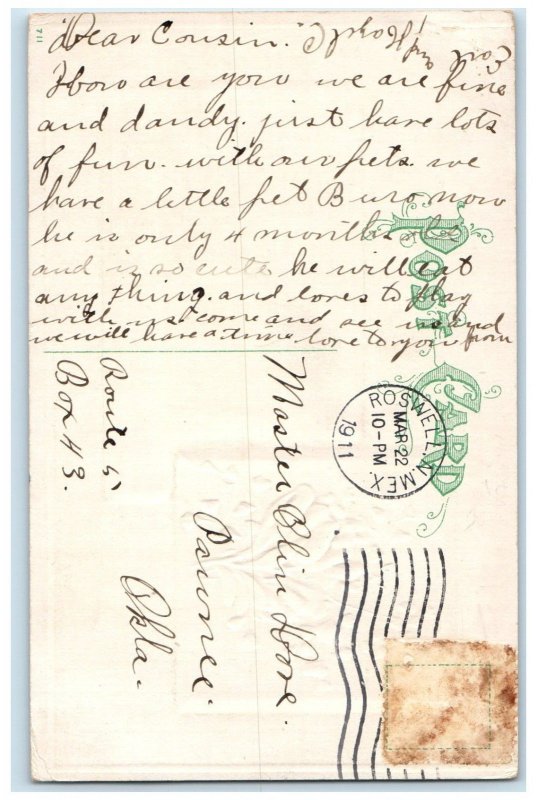 711
"Dear Cousin."
How are you we are fine
and dandy. just have lots
of fun. with our pets. we
have a little pet Buro now
he is only 4 months old
and is so cute he will eat
any thing. and loves to play
with us. come and see us and
we will have a time love to you from
Earl and Hoyt C
POST CARD
ROSWELL, N. MEX
MAR 22
10-PM
1911
Master Olin Hove.
Pawnee.
Okla.
Route 5
Box 43.